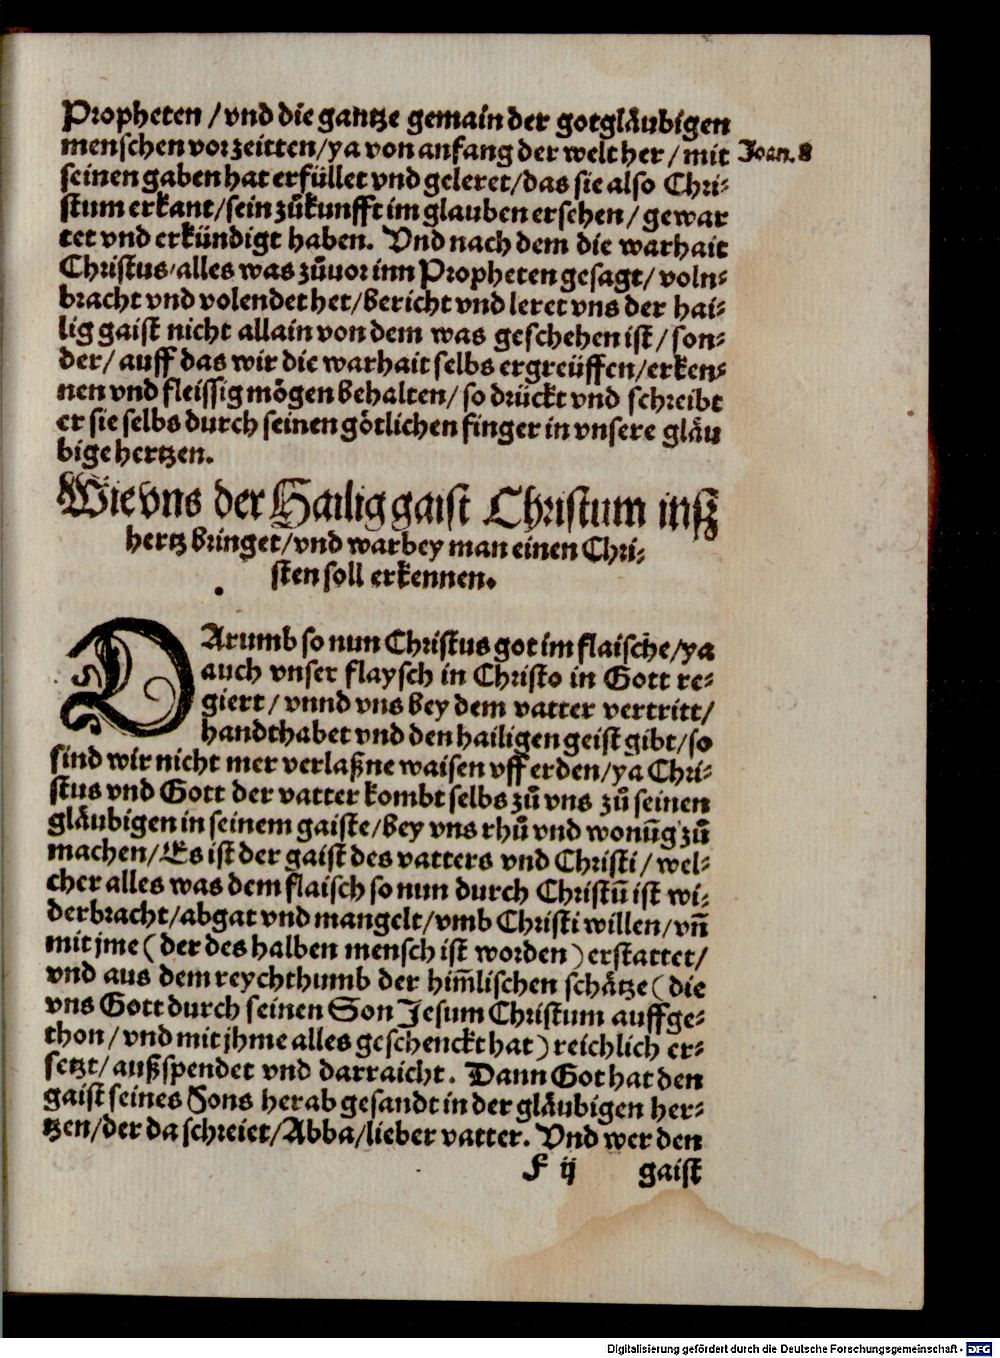 Propheten / vnd die gantze gemain der gotgläubigen
menschen vor zeitten / ya von anfang der welt her / mit
Joan. 8
seinen gaben hat erfüllet vnd geleret / das sie also Chri⸗
stum erkant / sein zůkunfft im glauben ersehen / gewar
tet vnd erkündigt haben. Vnd nach dem die warhait
Christus / alles was zůuor inn Propheten gesagt / voln⸗
bracht vnd volendet het / bericht vnd leret vns der hai⸗
lig gaist nicht allain von dem was geschehen ist / son⸗
der / auff das wir die warhait selbs ergreüffen / erken⸗
nen vnd fleissig mögen behalten / so drückt vnd schreibt
er sie selbs durch seinen götlichen finger in vnsere gläu
bige hertzen.
Wie vns der Hailig gaist Christum inß
hertz bringet / vnd warbey man einen Chri⸗
sten soll erkennen.
DArumb so nun Christus got im flaische / ya
auch vnser flaysch in Christo in Gott re⸗
giert / vnnd vns bey dem vatter vertritt /
handthabet vnd den hailigen geist gibt / so
sind wir nicht mer verlaßne waisen vff erden / ya Chri⸗
stus vnd Gott der vatter kombt selbs zů vns zů seinen
gläubigen in seinem gaiste / bey vns rhů vnd wonūg zů
machen / Es ist der gaist des vatters vnd Christi / wel⸗
cher alles was dem flaisch so nun durch Christū ist wi⸗
derbracht / abgat vnd mangelt / vmb Christi willen / vñ
mit jme ( der des halben mensch ist worden ) erstattet /
vnd aus dem reychthumb der him̄lischen schätze ( die
vns Gott durch seinen Son Jesum Christum auffge⸗
thon / vnd mit jhme alles geschenckt hat ) reichlich er⸗
setzt / außspendet vnd darraicht. Dann Got hat den
gaist seines Sons herab gesandt in der gläubigen her⸗
tzen / der da schreiet / Abba / lieber vatter. Vnd wer den
F ij gaist
Digitalisierung gefördert durch die Deutsche Forschungsgemeinschaft - DFG